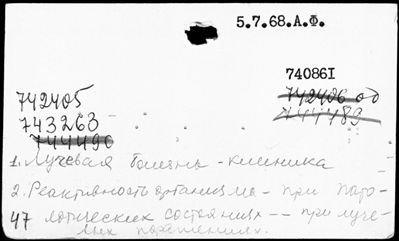 5.7.68.А.Ф.
740861
742405
742406 од
743263
744489
744490
1. Лучевая болезнь - клиника
2. Реактивность организма - при пато-
47 логических состояниях -- при луче-
вых поражениях.